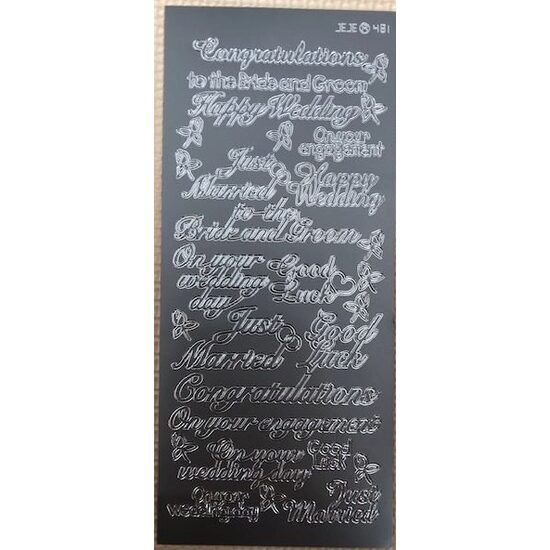 JEJE R 481
Congratulations
to the Bride and Groom
Happy Wedding
On your
engagement
Just
Married
Happy
Wedding
to the
Bride and Groom
On your
wedding
day
Good
Luck
Just
Married
Good
Luck
Congratulations
On your engagement
On your
wedding day
Good
Luck
On your
wedding day
Just
Married